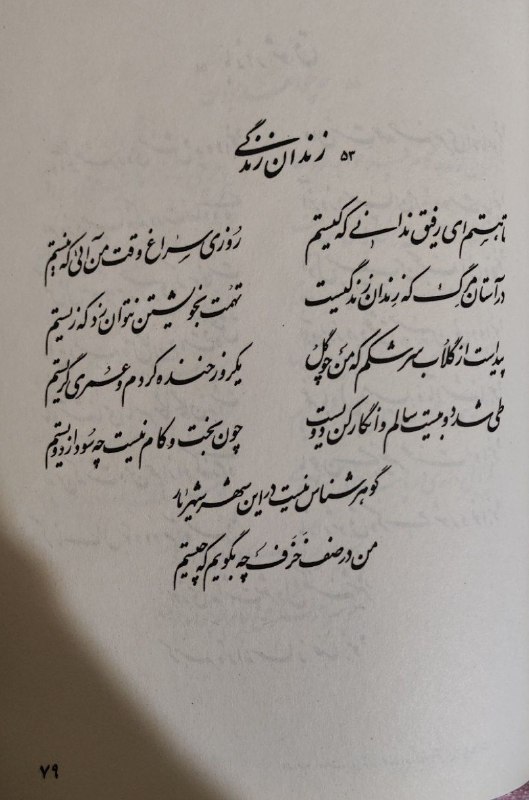 ۵۳ زندان زندگی
تا هستم ای رفیق ندانی که کیستم روزی سراغ وقت من آئی که نیستم
در آستان مرگ که زندان زندگیست تهمت بخویشتن نتوان زد که زیستم
پیداست از گلاب سرشکم که من چو گل یکروز خنده کردم و عمری گریستم
طی شد دو بیست سالم و انگار کن دویست چون بخت و کام نیست چه سود از دویستم
گوهرشناس نیست در این شهر شهریار
من در صف خزف چه بگویم که چیستم
۷۹